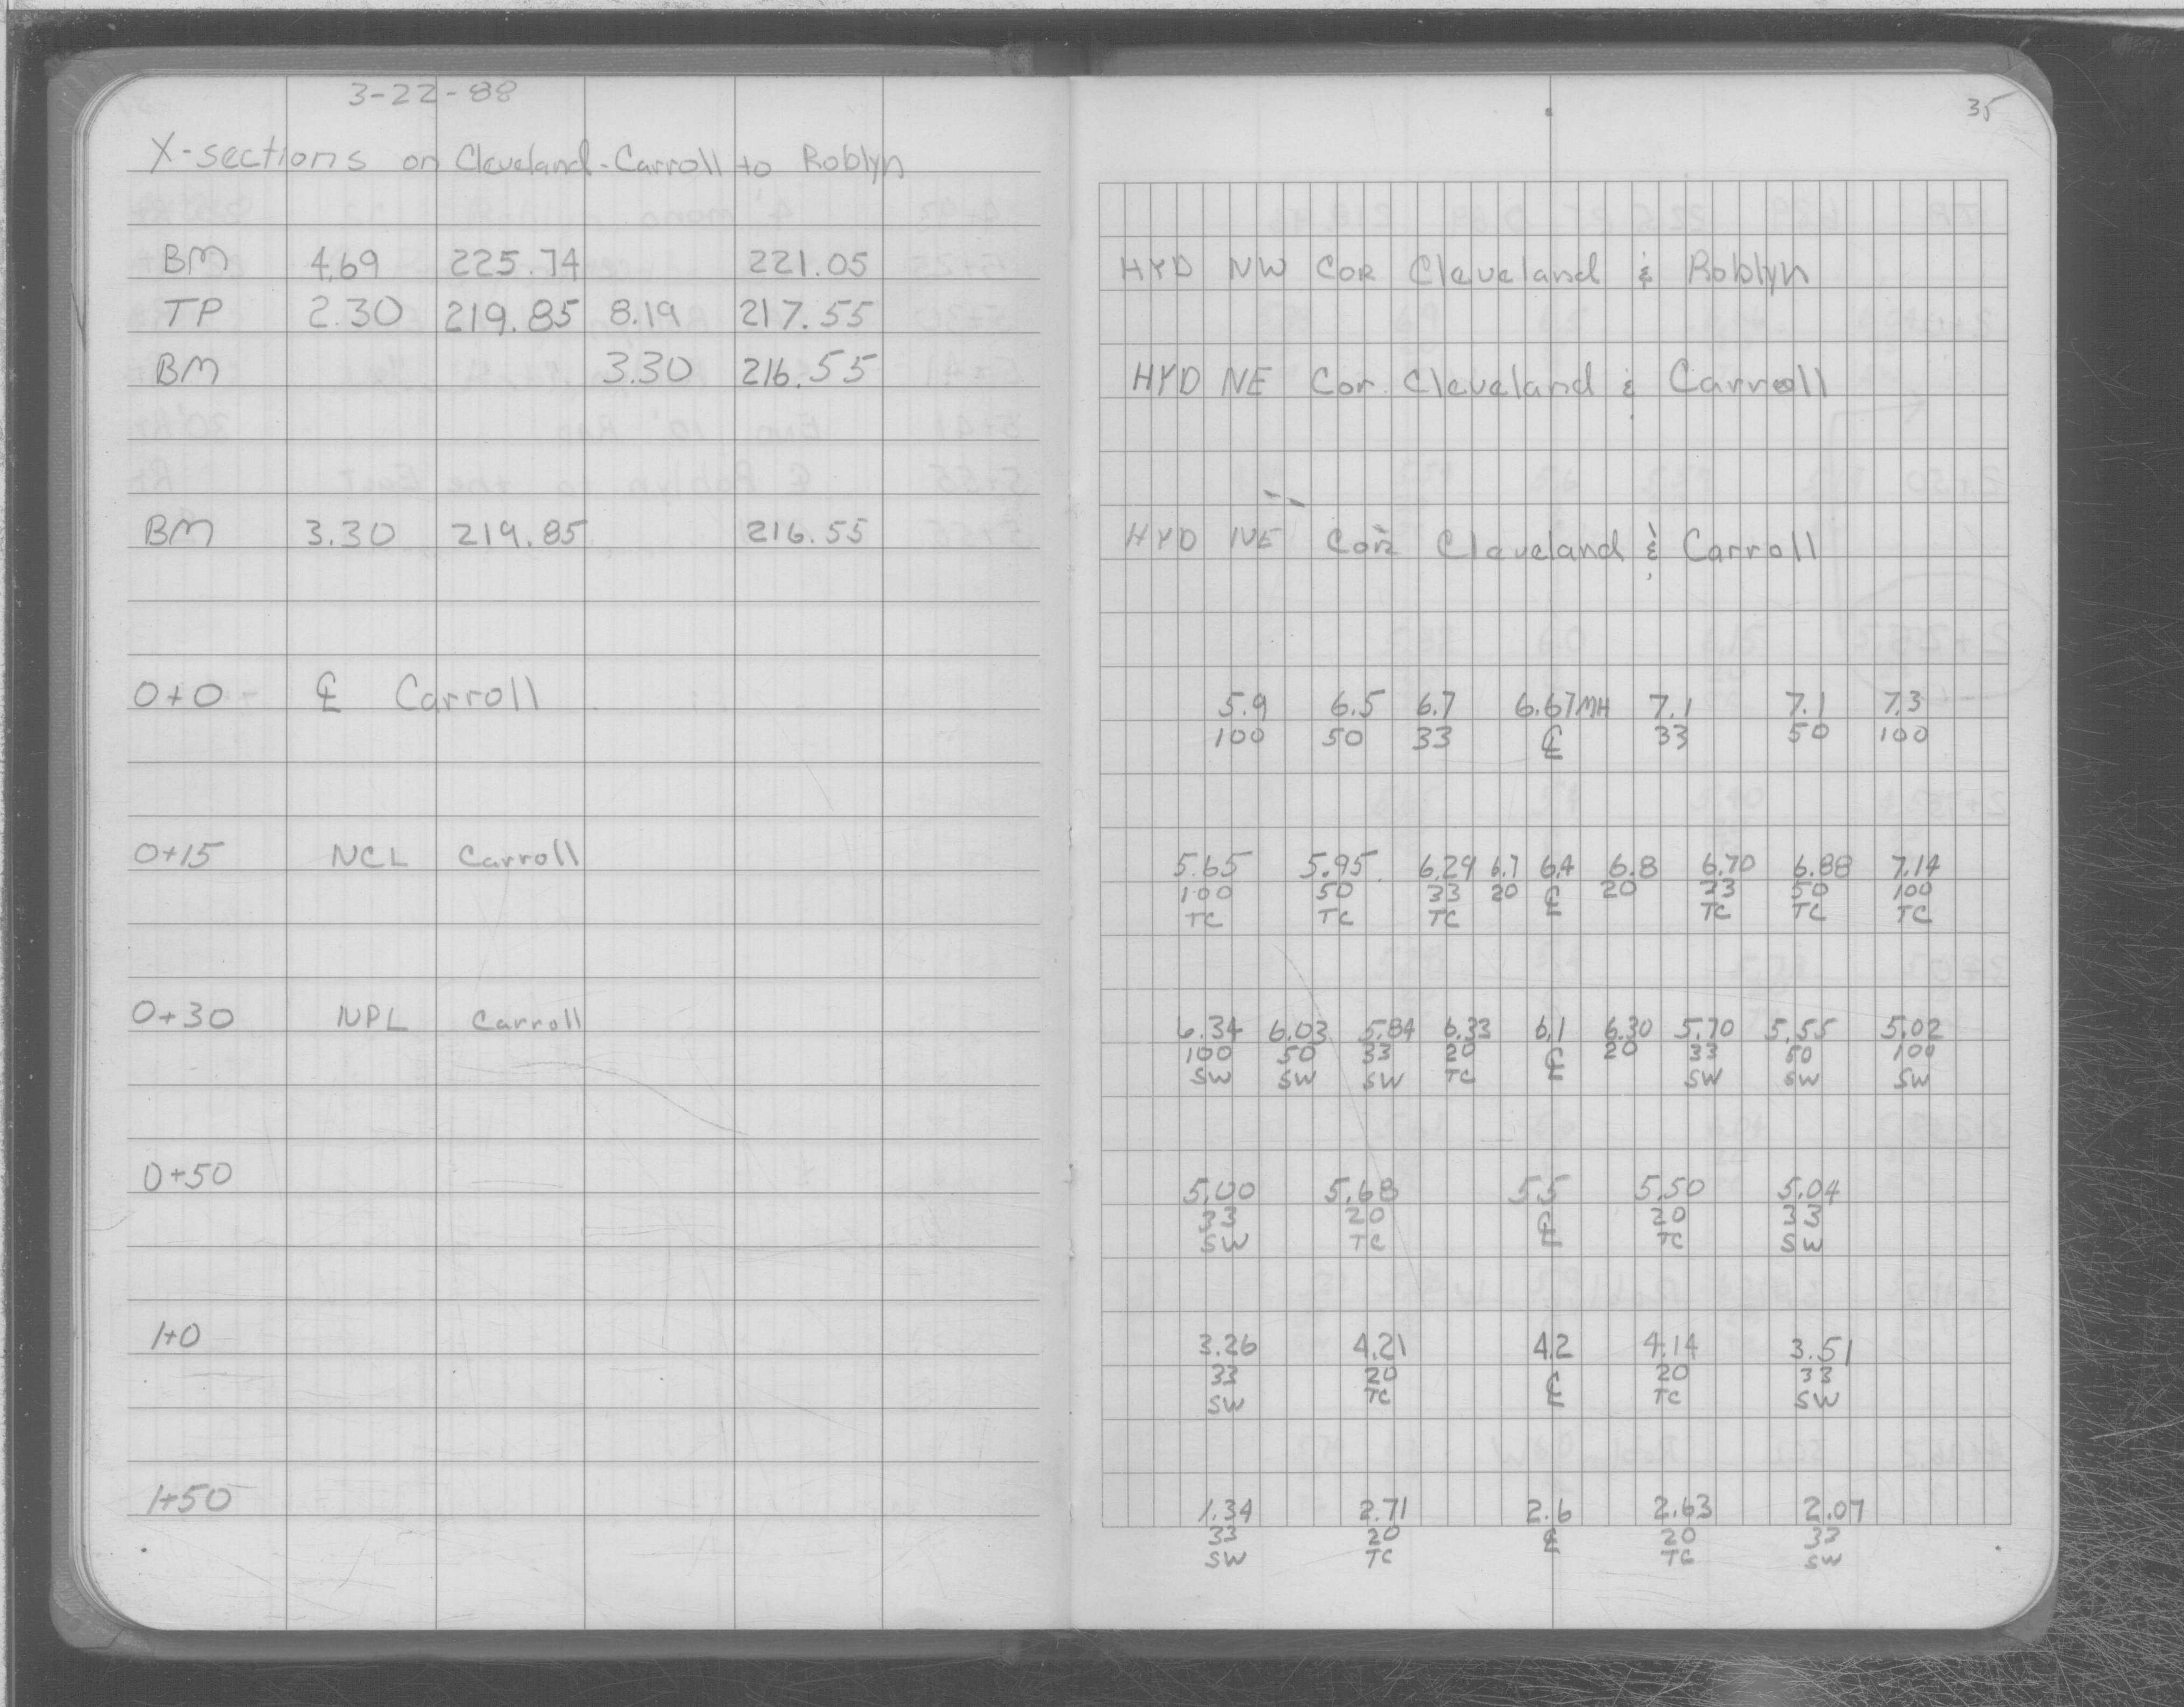 3-22-88
35
X-sections on Cleveland-Carroll to Roblyn
BM 4.69 225.74 221.05 HYD NW COR Cleveland & Roblyn
TP 2.30 219.85 8.19 217.55
BM 3.30 216.55 HYD NE Cor. Cleveland & Carroll
BM 3.30 219.85 216.55 HYD NE Cor Cleveland & Carroll
0+0 ℄ Carroll 5.9 6.5 6.7 6.67MH 7.1 7.1 7.3
100 50 33 ℄ 33 50 100
0+15 NCL Carroll 5.65 5.95 6.29 6.7 6.4 6.8 6.70 6.88 7.14
100 50 33 20 ℄ 20 33 50 100
TC TC TC TC TC TC
0+30 NPL Carroll 6.34 6.03 5.84 6.33 6.1 6.30 5.70 5.55 5.02
100 50 33 20 ℄ 20 33 50 100
SW SW SW TC SW SW SW
0+50 5.00 5.68 5.5 5.50 5.04
33 20 ℄ 20 33
SW TC TC SW
1+0 3.26 4.21 4.2 4.14 3.51
33 20 ℄ 20 33
SW TC TC SW
1+50 1.34 2.71 2.6 2.63 2.07
33 20 ℄ 20 33
SW TC TC SW